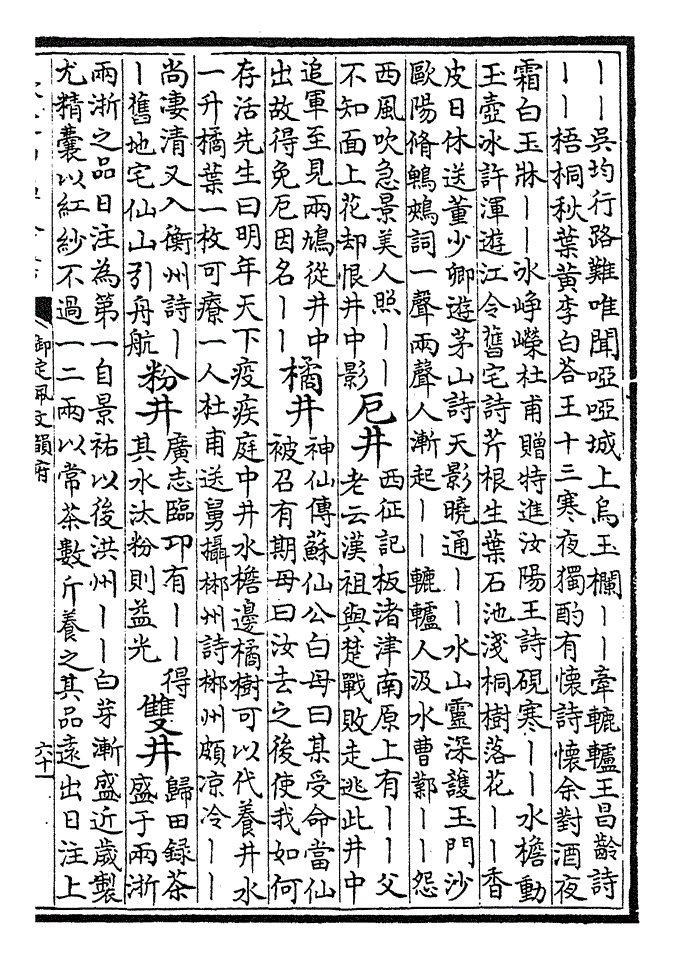 ——吳均行路難唯聞啞啞城上烏玉欄——牽轆轤王昌齡詩
——梧桐秋葉黃李白荅王十三寒夜獨酌有懷詩懷余對酒夜
霜白玉牀——冰崢嶸杜甫贈特進汝陽王詩硯寒——水檐動
玉壺冰許渾遊江令舊宅詩芹根生葉石池淺桐樹落花——香
皮日休送董少卿遊茅山詩天影曉通——水山靈深護玉門沙
歐陽脩鵯鵊詞一聲兩聲人漸起——轆轤人汲水曹鄴——怨
西風吹急景美人照——
不知面上花却恨井中影
厄井
西征記板渚津南原上有——父
老云漢祖與楚戰敗走逃此井中
追軍至見兩鳩從井中
出故得免厄因名——
橘井
神仙傳蘇仙公白母曰某受命當仙
被召有期母曰汝去之後使我如何
存活先生曰明年天下疫疾庭中井水檐邊橘樹可以代養井水
一升橘葉一枚可療一人杜甫送舅攝郴州詩郴州頗涼冷——
尚凄清又入衡州詩—
—舊地宅仙山引舟航
粉井
廣志臨卭有——得
其水汰粉則益光
雙井
歸田錄茶
盛于兩浙
兩浙之品日注為第一自景祐以後洪州——白芽漸盛近歲製
尤精囊以紅紗不過一二兩以常茶數斤養之其品遠出日注上
御定佩文韻府